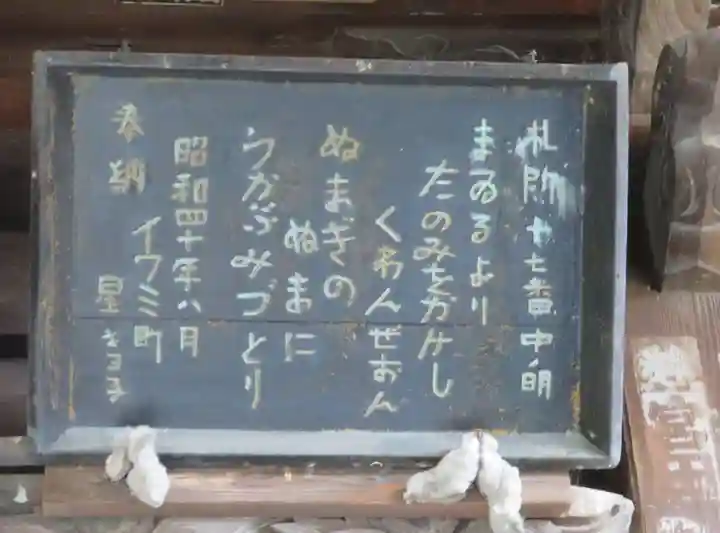 札所十七番中ノ明
まゐるより
たのみをかけし
くわんぜおん
ぬまぎの
ぬまに
うかぶみづとり
昭和四十年八月
イワミ町
奉納
星きヨ子